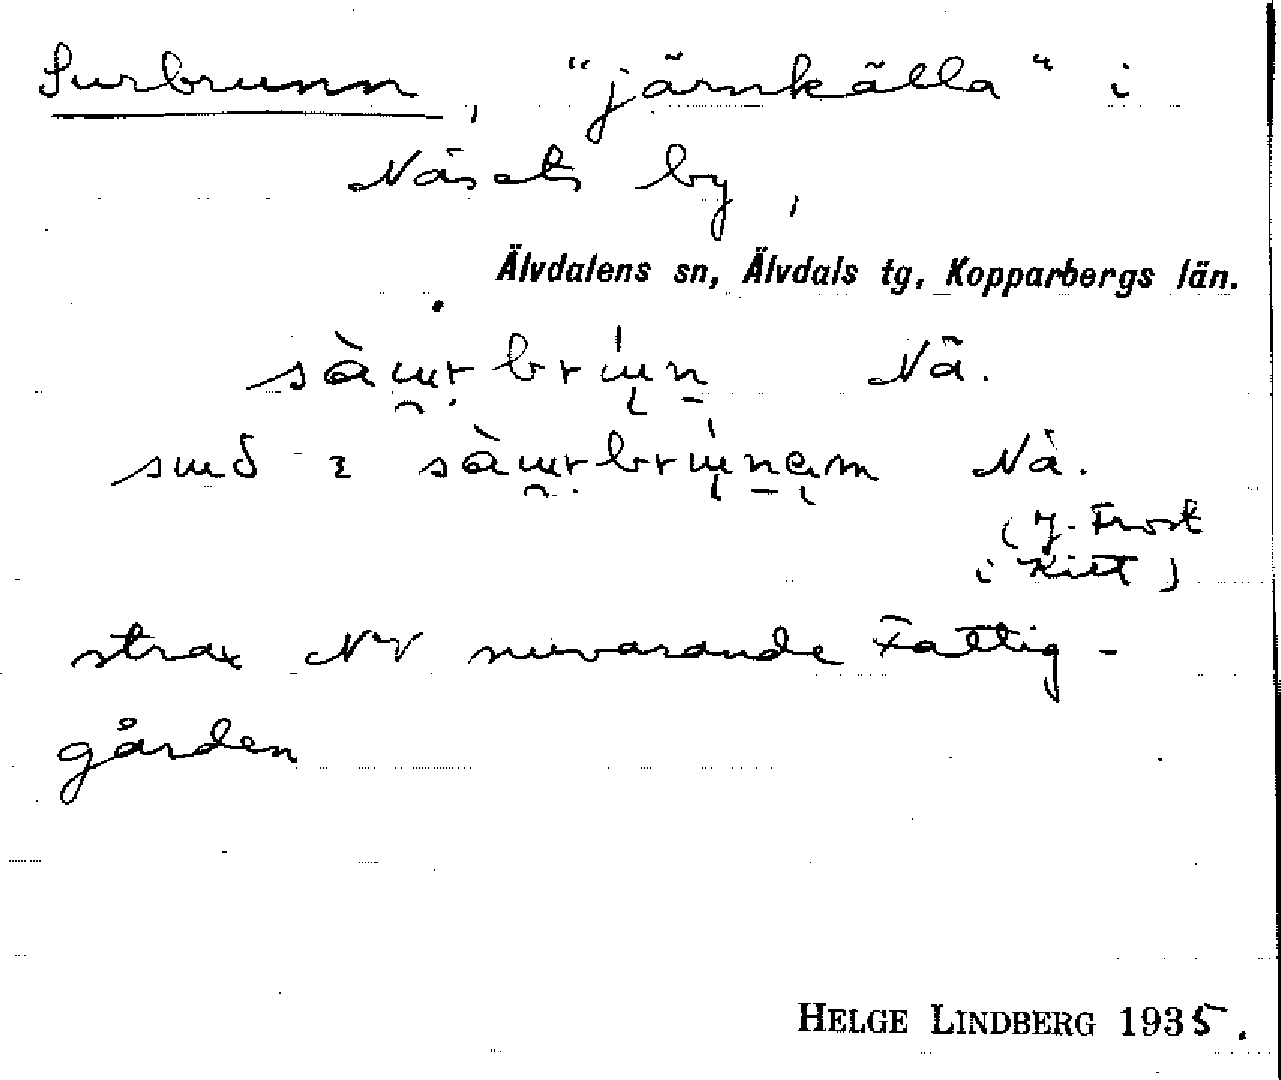 Surbrunn, "järnkälla" i
Näsets by,
Älvdalens sn, Älvdals tg, Kopparbergs län.
sàu̯rbrun Nä.
suð i sàu̯rbrunąm Nä.
(J. Frost
i Kitt)
strax NV nuvarande Fattig-
gården
HELGE LINDBERG 1935.